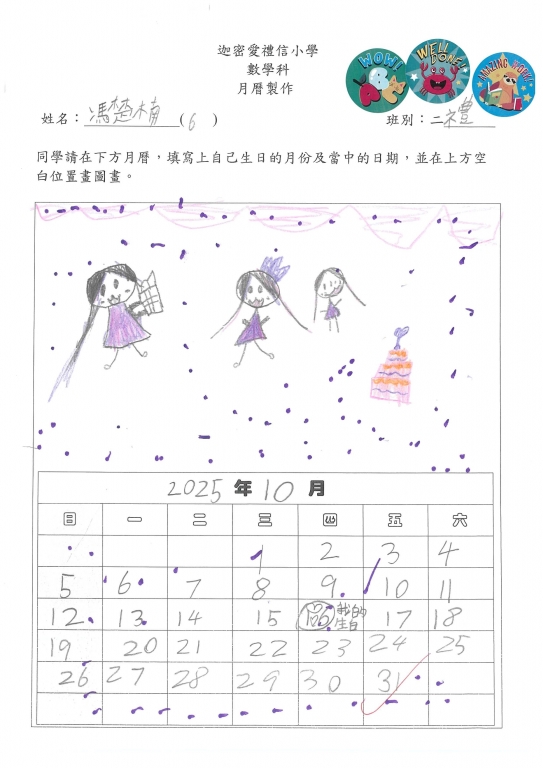 迦密愛禮信小學
數學科
月曆製作
WOW!
ABC
WELL DONE!
AMAZING WORK!
姓名：馮楚楠(6) 班別：二禮
同學請在下方月曆，填寫上自己生日的月份及當中的日期，並在上方空
白位置畫圖畫。
2025 年 10 月
日 一 二 三 四 五 六
1 2 3 4
5 6 7 8 9 10 11
12 13 14 15 16 我的生日 17 18
19 20 21 22 23 24 25
26 27 28 29 30 31